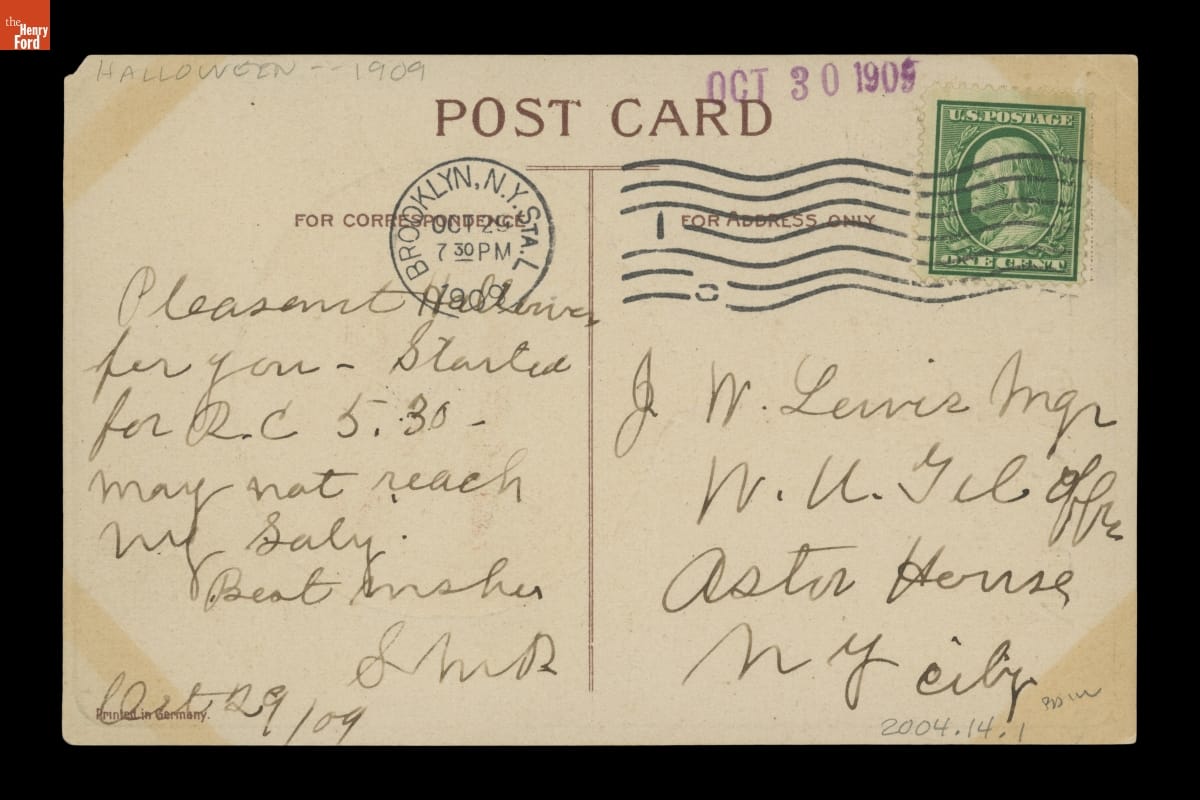 the
Henry
Ford
HALLOWEEN -- 1909
OCT 30 1909
POST CARD
U.S. POSTAGE
ONE CENT
BROOKLYN, N.Y. STA. L
OCT 29
7 30 PM
1909
FOR CORRESPONDENCE
FOR ADDRESS ONLY
Pleasant
for you - Started
for R.C 5.30 -
may not reach
NY Saty.
Best wishes
SMR
Oct 29/09
Printed in Germany.
J. W. Lewis Mgr
W. U. Tel Offc
Astor House
N Y City
2004.14.1